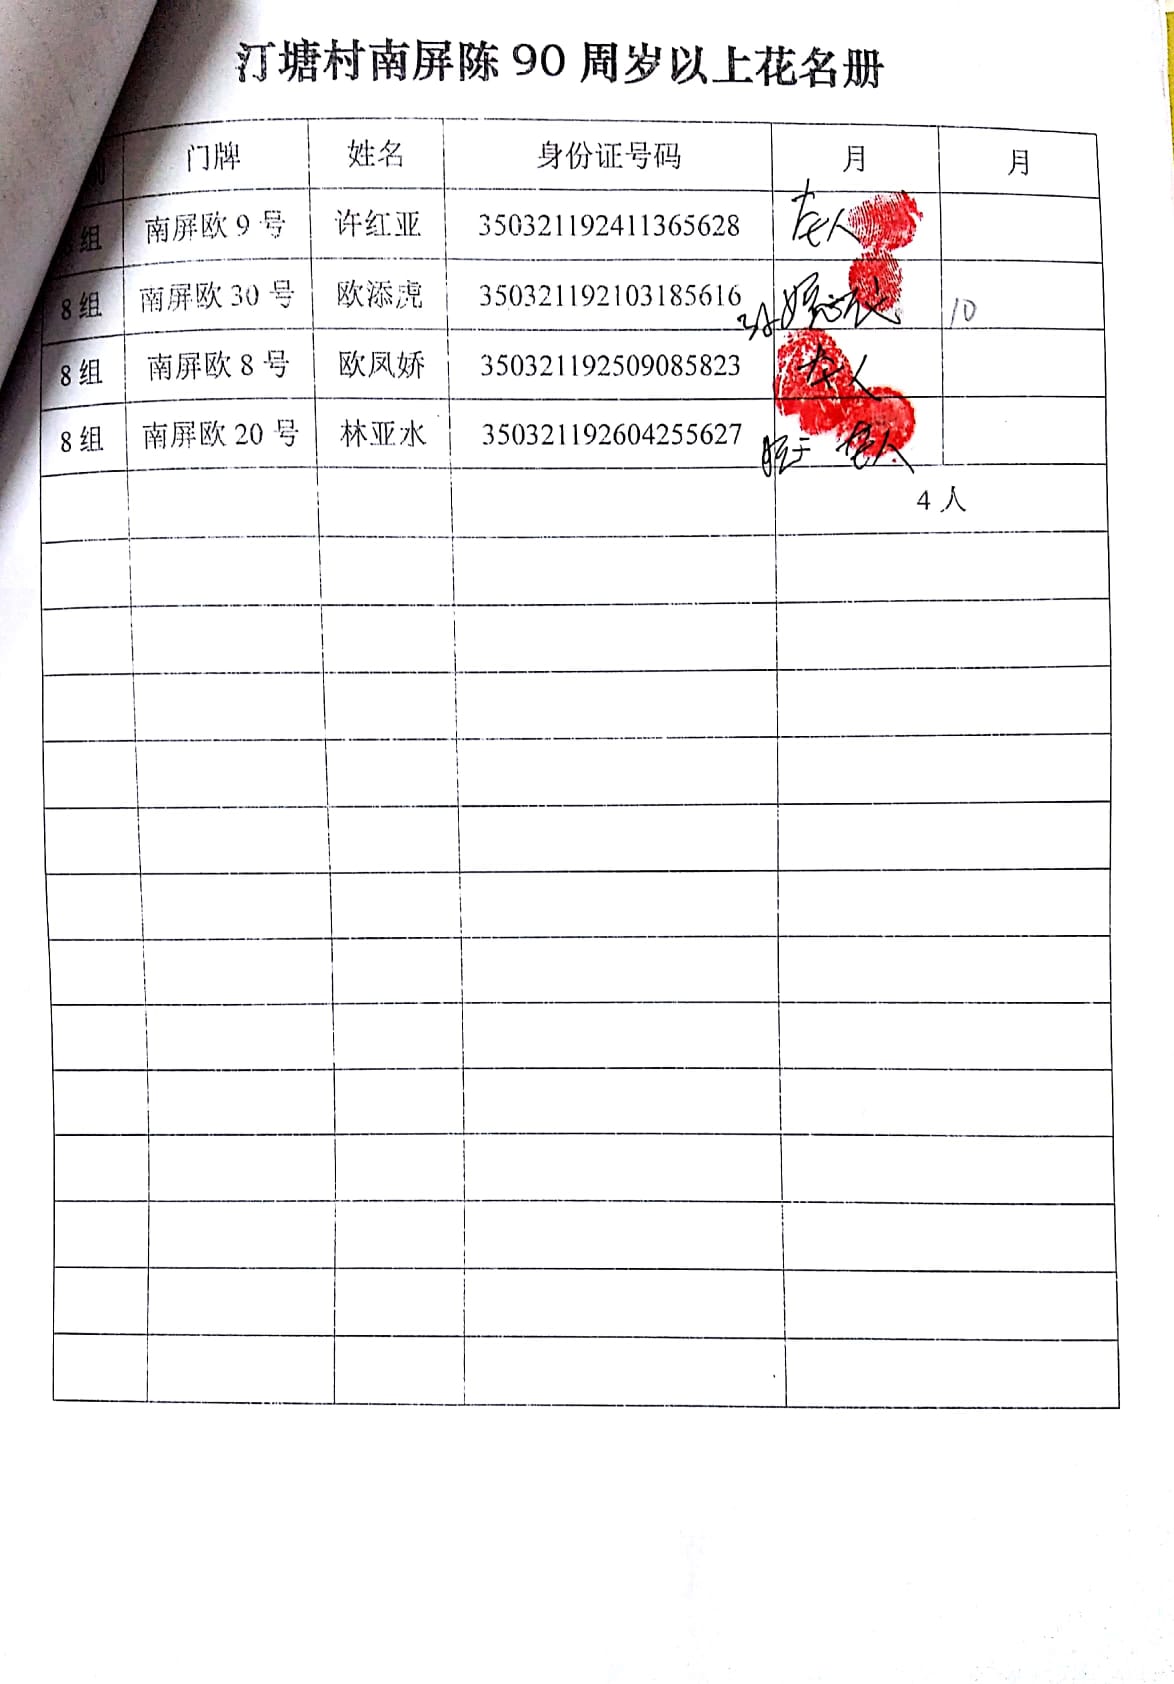 汀塘村南屏陈90周岁以上花名册
门牌 姓名 身份证号码 月 月
组 南屏欧9号 许红亚 350321192411365628 老人
8组 南屏欧30号 欧添虎 350321192103185616 10
8组 南屏欧8号 欧凤娇 350321192509085823 老人
8组 南屏欧20号 林亚水 350321192604255627 老人
4人